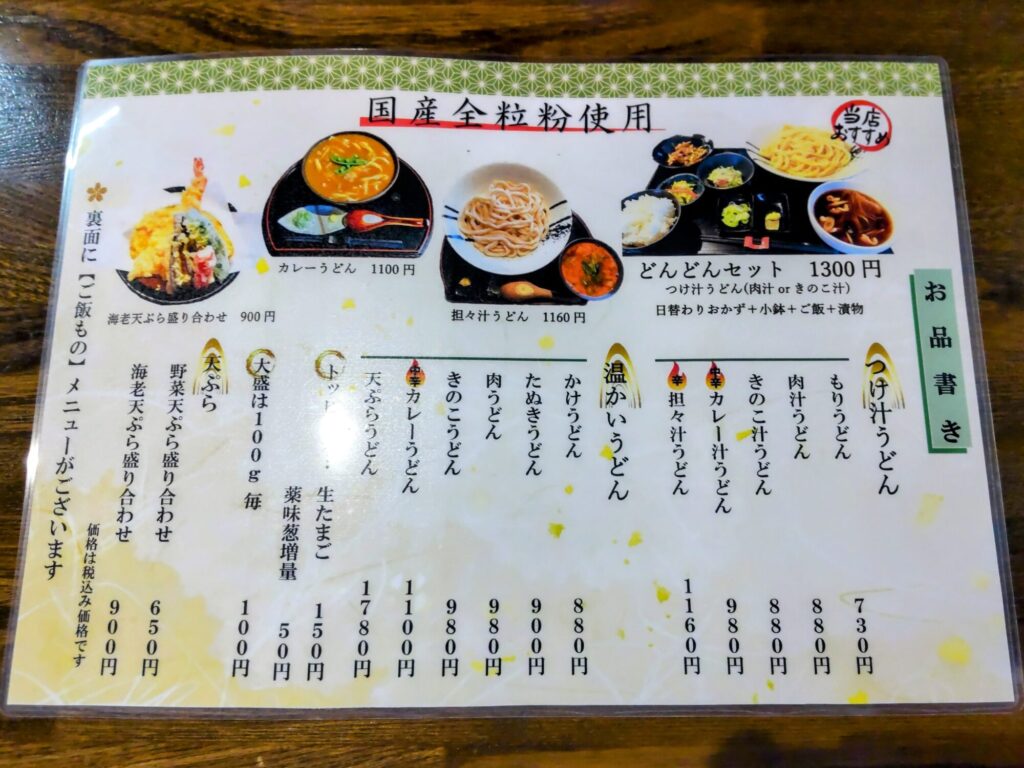 国産全粒粉使用
当店
おすすめ
海老天ぷら盛り合わせ 900円
カレーうどん 1100円
担々汁うどん 1160円
どんどんセット 1300円
つけ汁うどん(肉汁 or きのこ汁)
日替わりおかず+小鉢+ご飯+漬物
お品書き
つけ汁うどん
もりうどん 730円
肉汁うどん 880円
きのこ汁うどん 880円
中辛 カレー汁うどん 980円
辛 担々汁うどん 1160円
温かいうどん
かけうどん 880円
たぬきうどん 900円
肉うどん 980円
きのこうどん 980円
中辛 カレーうどん 1100円
天ぷらうどん 1780円
トッ
生たまご 150円
薬味葱増量 50円
大盛は100g毎 100円
天ぷら
野菜天ぷら盛り合わせ 650円
海老天ぷら盛り合わせ 900円
価格は税込み価格です
裏面に【ご飯もの】メニューがございます